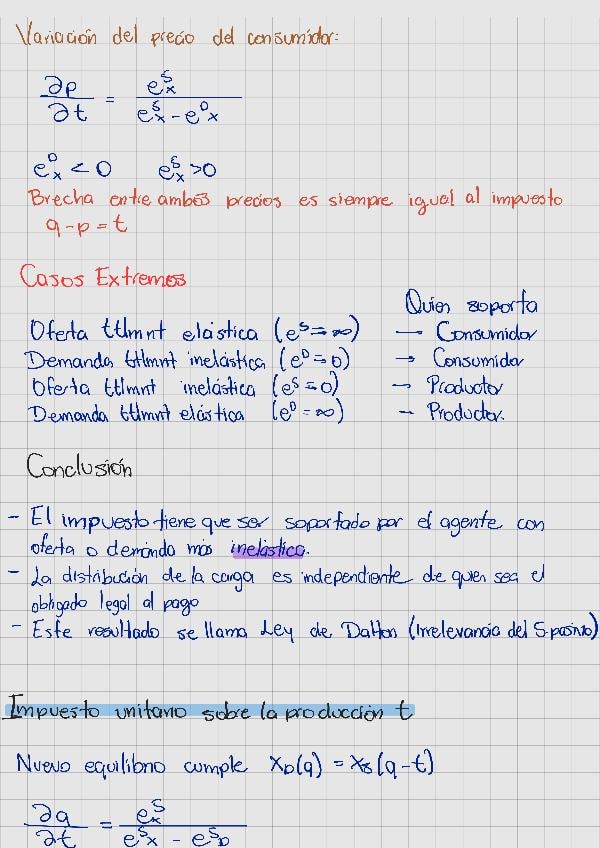 Variación del precio del consumidor:
∂p/∂t = e^S_x / (e^S_x - e^D_x)
e^D_x < 0 e^S_x > 0
Brecha entre ambos precios es siempre igual al impuesto
q - p = t
Casos Extremos
Quien soporta
Oferta ttlmnt elástica (e^S = ∞) → Consumidor
Demanda ttlmnt inelástica (e^D = 0) → Consumidor
Oferta ttlmnt inelástica (e^S = 0) → Productor
Demanda ttlmnt elástica (e^D = ∞) → Productor.
Conclusión
- El impuesto tiene que ser soportado por el agente con
oferta o demanda más inelástica.
- La distribución de la carga es independiente de quien sea el
obligado legal al pago
- Este resultado se llama Ley de Dalton (Irrelevancia del S.pasivo)
Impuesto unitario sobre la producción t
Nuevo equilibrio cumple X_D(q) = X_S(q-t)
∂q/∂t = e^S_x / (e^S_x - e^S_D)